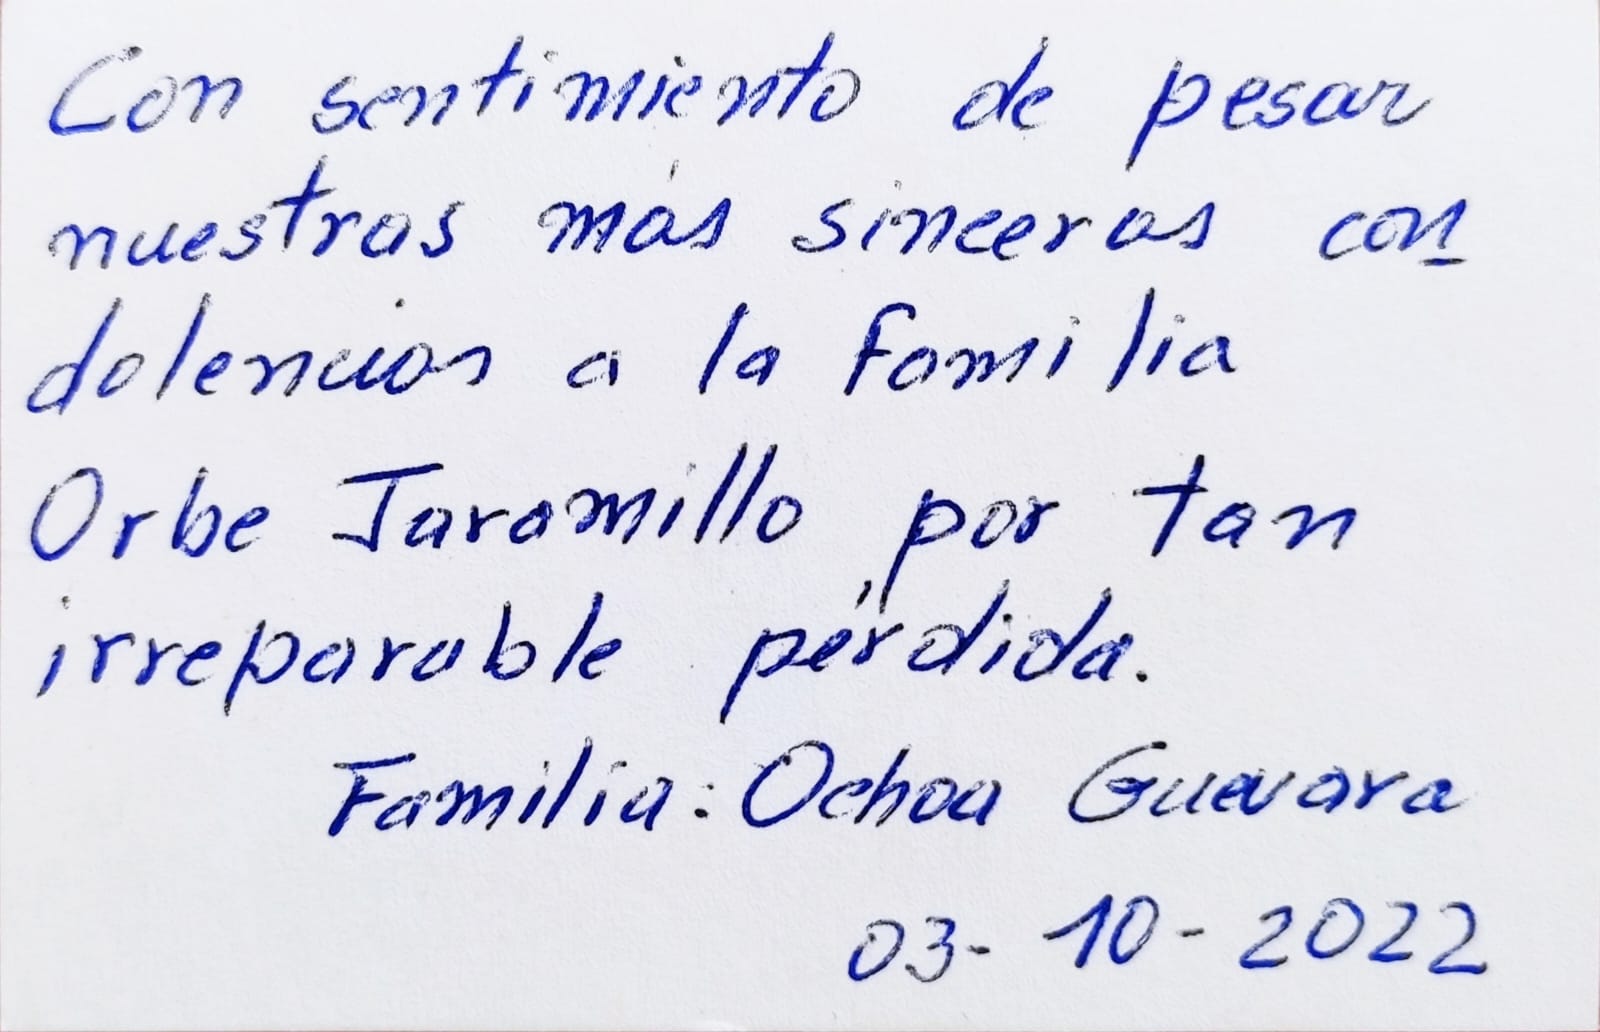 Con sentimiento de pesar
nuestras más sinceras con_
dolencias a la familia
Orbe Jaramillo por tan
irreparable pérdida.
Familia: Ochoa Guevara
03- 10 - 2022